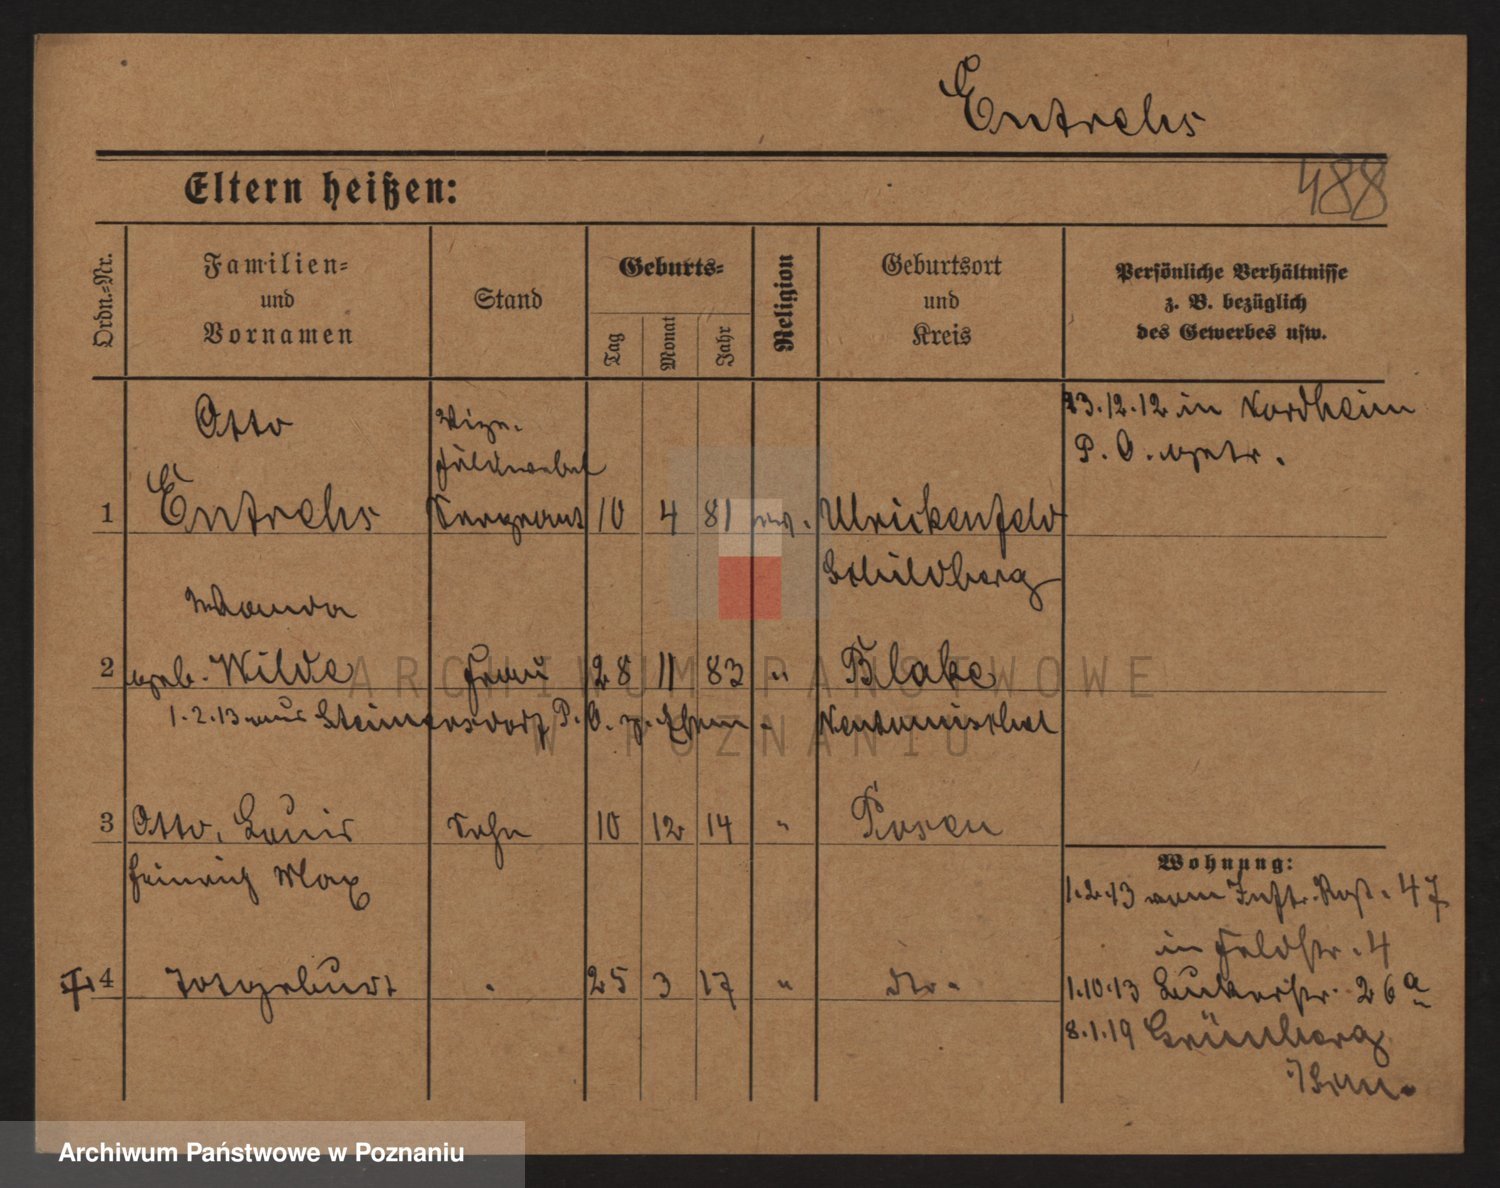 Entrehs
488
Eltern heißen:
Ordn.-Nr.
Familien-
und
Vornamen
Stand
Geburts-
Tag
Monat
Jahr
Religion
Geburtsort
und
Kreis
Persönliche Verhältnisse
z. B. bezüglich
des Gewerbes usw.
23.12.12 in Nordheim
P. O. getr.
Otto
Vize-
feldwebel
1 Entrehs Sergeant 10 4 81 ev. Ulrickenfeld
Schildberg
Wanda
2 geb. Wilde Frau 28 11 83 " Blake
1.2.13 aus Steinersdorf P. O. z. Ehem. Neutomischel
3 Otto, Louis Sohn 10 12 14 " Posen
Heinrich Max
4 Totgeburt 25 3 17 " dto.
Wohnung:
1.2.13 vom Inftr. Rgt. 47
in Feldstr. 4
1.10.13 Bukerstr. 26a
8.1.19 Grünberg
ARCHIWUM PAŃSTWOWE
W POZNANIU
Archiwum Państwowe w Poznaniu